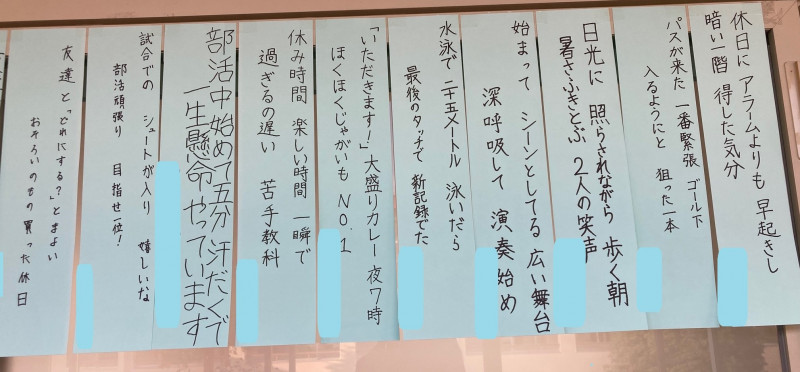 休日に アラームよりも 早起きし
暗い一階 得した気分
パスが来た 一番緊張 ゴール下
入るようにと 狙った一本
日光に 照らされながら 歩く朝
暑さふきとぶ 2人の笑声
始まって シーンとしてる 広い舞台
深呼吸して 演奏始め
水泳で 二十五メートル 泳いだら
最後のタッチで 新記録でた
「いただきます!」大盛りカレー 夜7時
ほくほくじゃがいも NO.1
休み時間 楽しい時間 一瞬で
過ぎるの遅い 苦手教科
部活中始めて五分 汗だくで
一生懸命 やっています
試合での シュートが入り 嬉しいな
部活頑張り 目指せ一位!
友達と「どれにする?」とまよい
おそろいのもの 買った休日